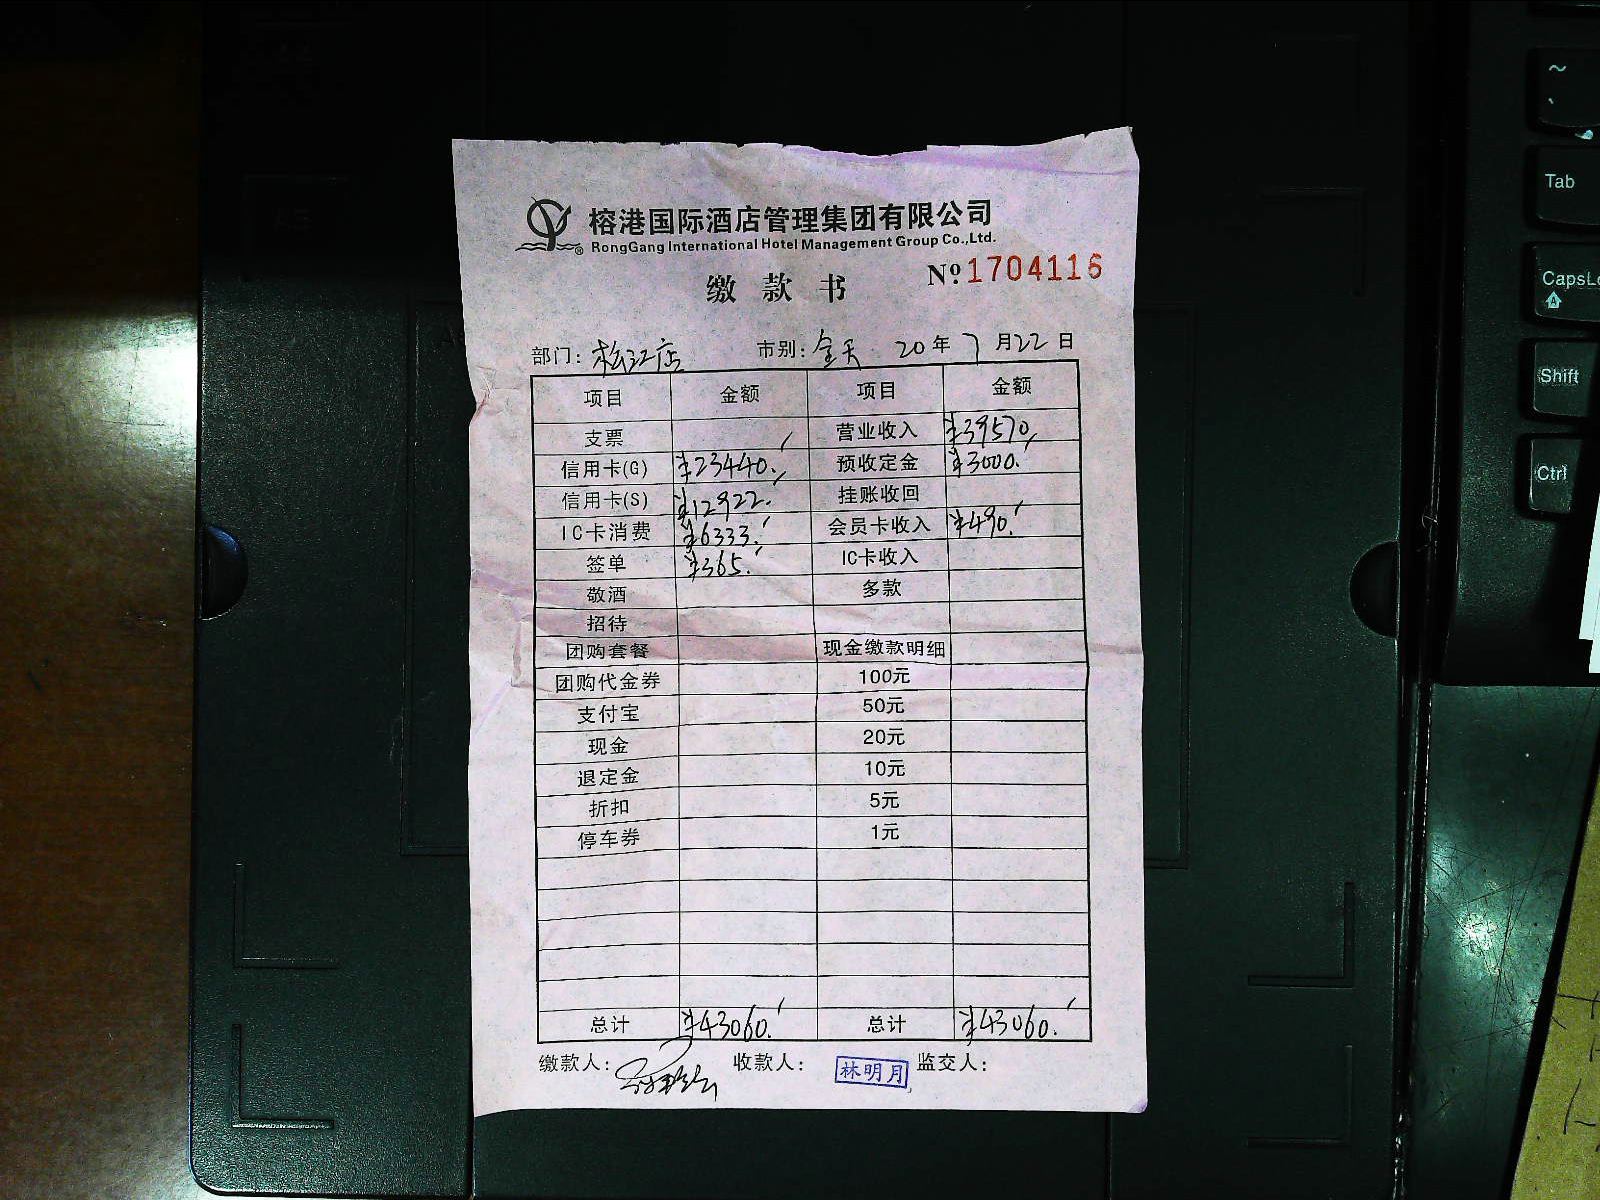 榕港国际酒店管理集团有限公司
RongGang International Hotel Management Group Co.,Ltd.
缴款书 №1704116
部门：松江店 市别：全天 20年7月22日
项目 金额 项目 金额
支票 营业收入 ¥39570.
信用卡(G) ¥23440. 预收定金 ¥3000.
信用卡(S) ¥12922. 挂账收回
IC卡消费 ¥6333. 会员卡收入 ¥490.
签单 ¥365. IC卡收入
敬酒 多款
招待
团购套餐 现金缴款明细
团购代金券 100元
支付宝 50元
现金 20元
退定金 10元
折扣 5元
停车券 1元
总计 ¥43060. 总计 ¥43060.
缴款人： 收款人：林明月 监交人：
~
Tab
CapsLo
Shift
Ctrl